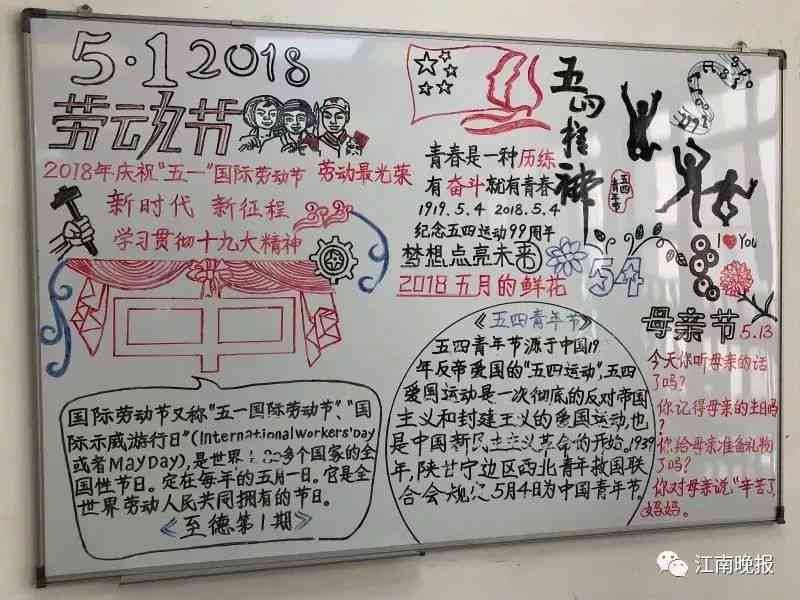 5·1 2018
劳动节
2018年庆祝"五一"国际劳动节 劳动最光荣
新时代 新征程
学习贯彻十九大精神
国际劳动节又称"五一国际劳动节"、"国
际示威游行日"(International Workers' Day
或者May Day),是世界上80多个国家的全
国性节日。定在每年的五月一日。它是全
世界劳动人民共同拥有的节日。
《至德第1期》
五四精神
五四青年节
青春是一种历练
有奋斗就有青春
1919.5.4 2018.5.4
纪念五四运动99周年
梦想点亮未来
2018五月的鲜花
54
《五四青年节》
五四青年节源于中国19
年反帝爱国的"五四运动",五四
爱国运动是一次彻底的反对帝国
主义和封建主义的爱国运动,也
是中国新民主主义革命的开始。1939
年,陕甘宁边区西北青年救国联
合会规定5月4日为中国青年节。
I ❤ You
母亲节 5.13
今天你听母亲的话
了吗?
你记得母亲的生日吗
?
你给母亲准备礼物
了吗?
你对母亲说:"辛苦了,
妈妈。
江南晚报